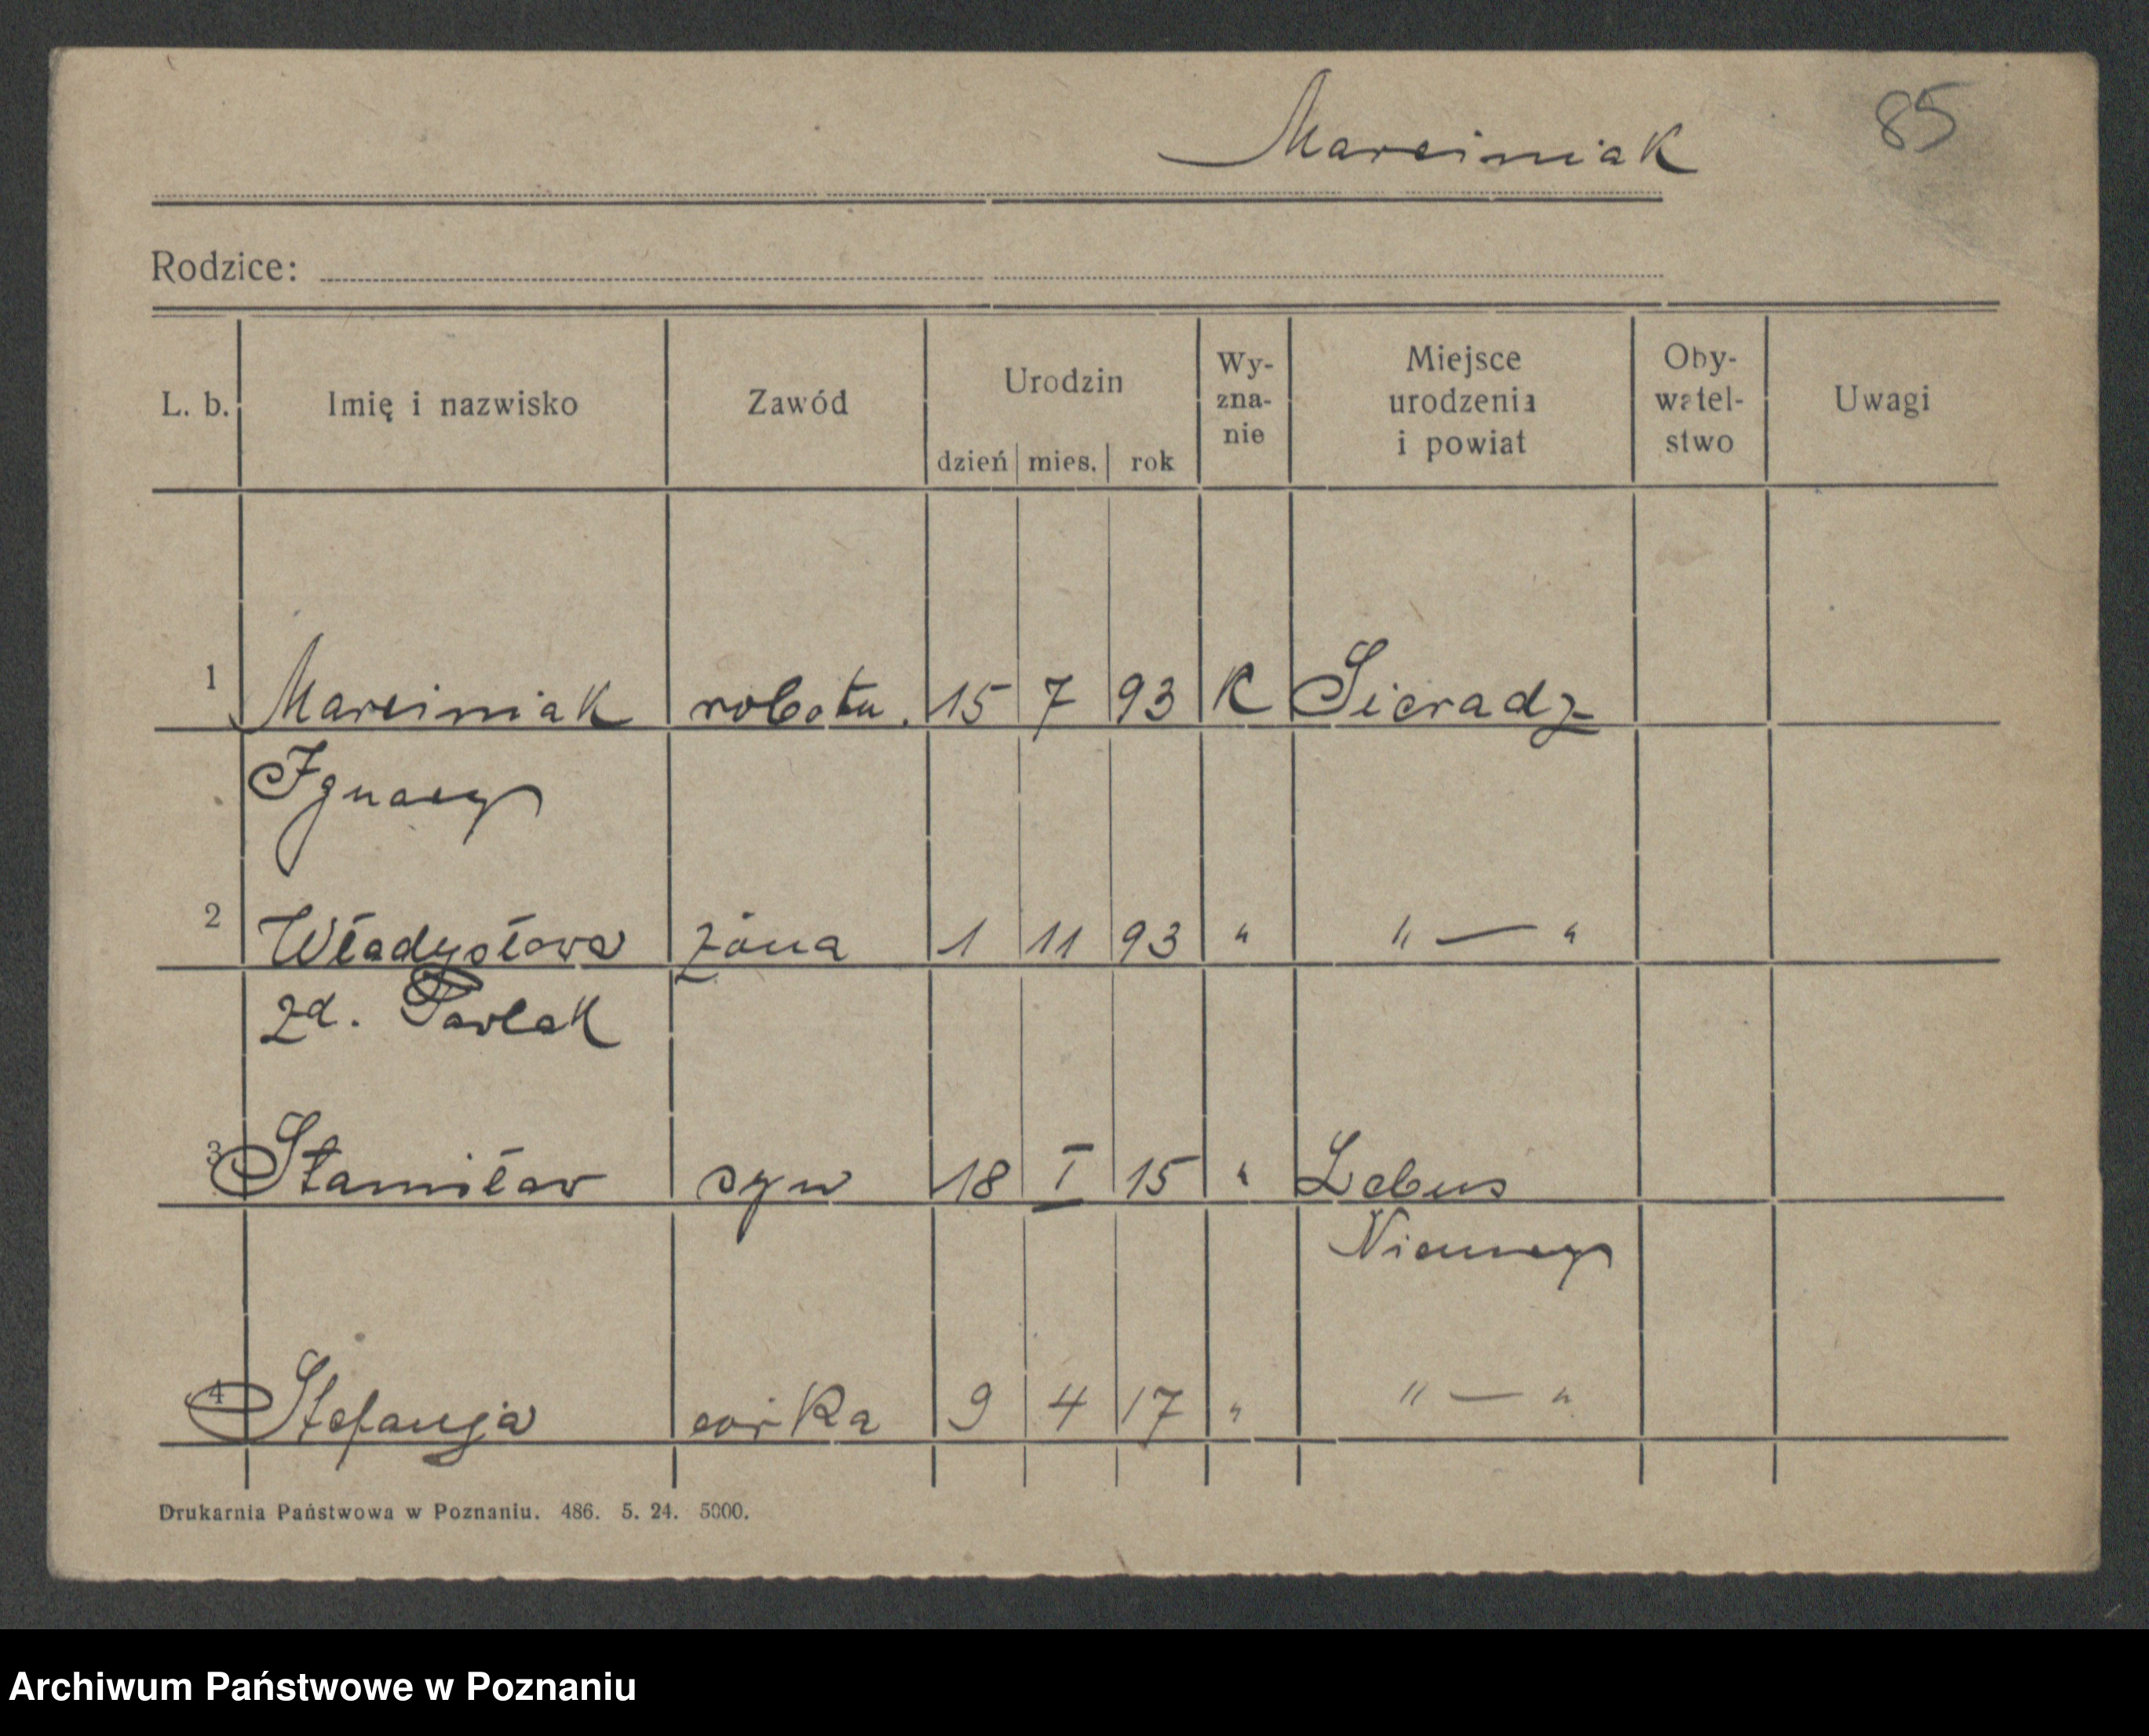 Marciniak 85
Rodzice:
L. b. Imię i nazwisko Zawód Urodzin dzień mies. rok Wy-zna-nie Miejsce urodzenia i powiat Oby-watel-stwo Uwagi
1 Marciniak robotn. 15 7 93 K Sieradz
Ignacy
2 Władysława żona 1 11 93 " " — "
zd. Pawlak
3 Stanisław syn 18 I 15 " Lebus
Niemcy
4 Stefanja córka 9 4 17 " " — "
Drukarnia Państwowa w Poznaniu. 486. 5. 24. 5000.
Archiwum Państwowe w Poznaniu